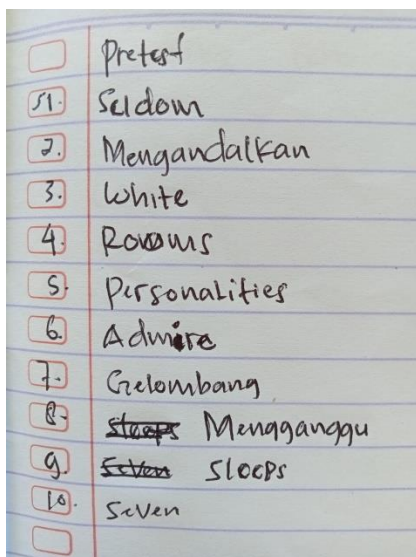 Pretest
1. Seldom
2. Mengandalkan
3. White
4. Rooms
5. Personalities
6. Admire
7. Gelombang
8. Mengganggu
9. Sleeps
10. Seven